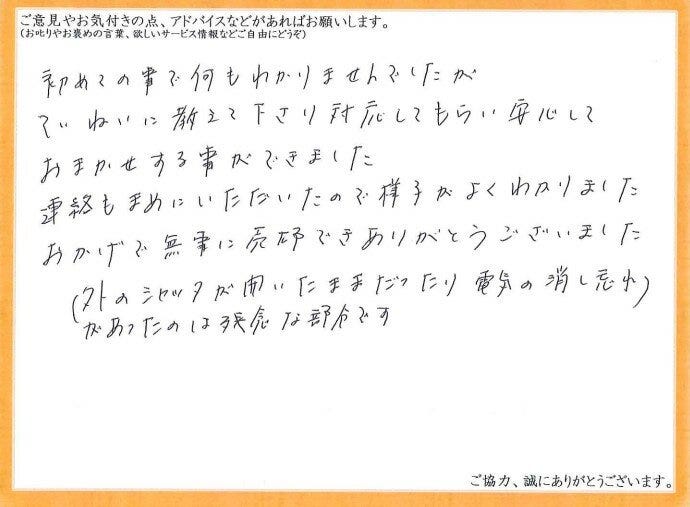 ご意見やお気付きの点、アドバイスなどがあればお願いします。
(お叱りやお褒めの言葉、欲しいサービス情報などご自由にどうぞ)
初めての事で何もわかりませんでしたが
ていねいに教えて下さり対応してもらい安心して
おまかせする事ができました
連絡もまめにいただいたので様子がよくわかりました
おかげで無事に売却できありがとうございました
(外のシャッタが開いたままだったり電気の消し忘れ)
があったのは残念な部分です
ご協力、誠にありがとうございます。